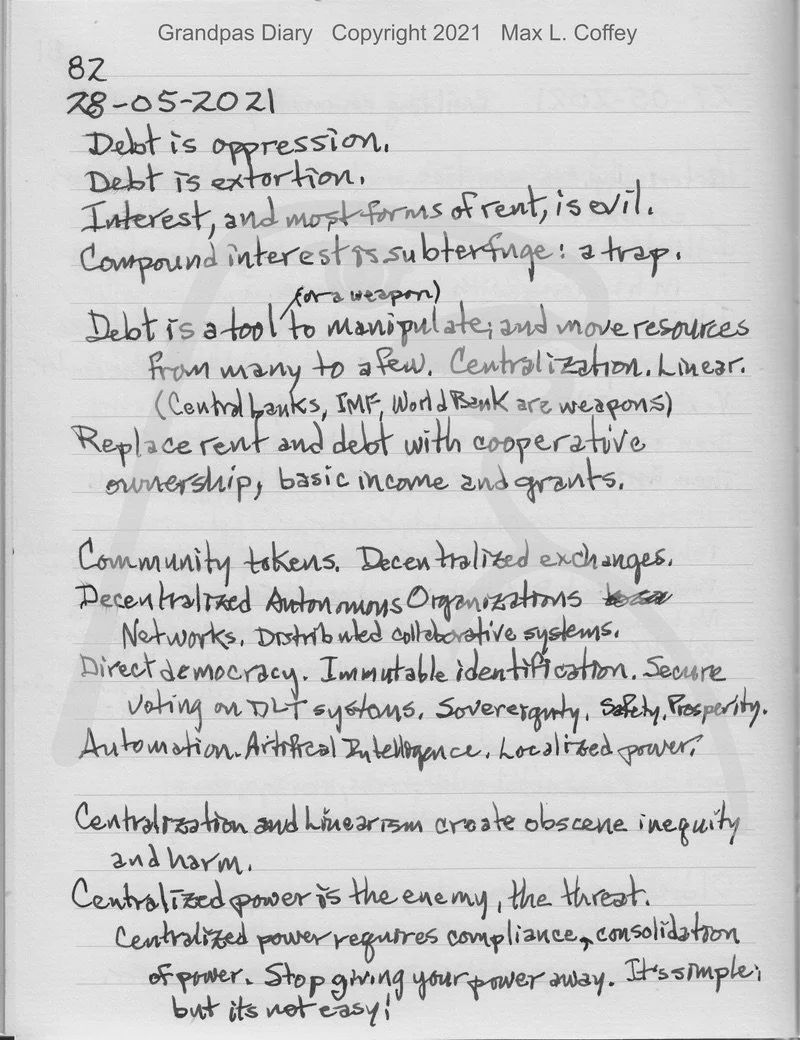 Grandpas Diary Copyright 2021 Max L. Coffey
82
28-05-2021
Debt is oppression.
Debt is extortion.
Interest, and most forms of rent, is evil.
Compound interest is subterfuge: a trap.
(or a weapon)
Debt is a tool to manipulate; and move resources
from many to a few. Centralization. Linear.
(Central banks, IMF, World Bank are weapons)
Replace rent and debt with cooperative
ownership, basic income and grants.
Community tokens. Decentralized exchanges.
Decentralized Autonomous Organizations
Networks. Distributed collaborative systems.
Direct democracy. Immutable identification. Secure
voting on DLT systems. Sovereignty. Safety. Prosperity.
Automation. Artifical Intelligence. Localized power.
Centralization and Linearism create obscene inequity
and harm.
Centralized power is the enemy, the threat.
Centralized power requires compliance, consolidation
of power. Stop giving your power away. It's simple;
but its not easy!